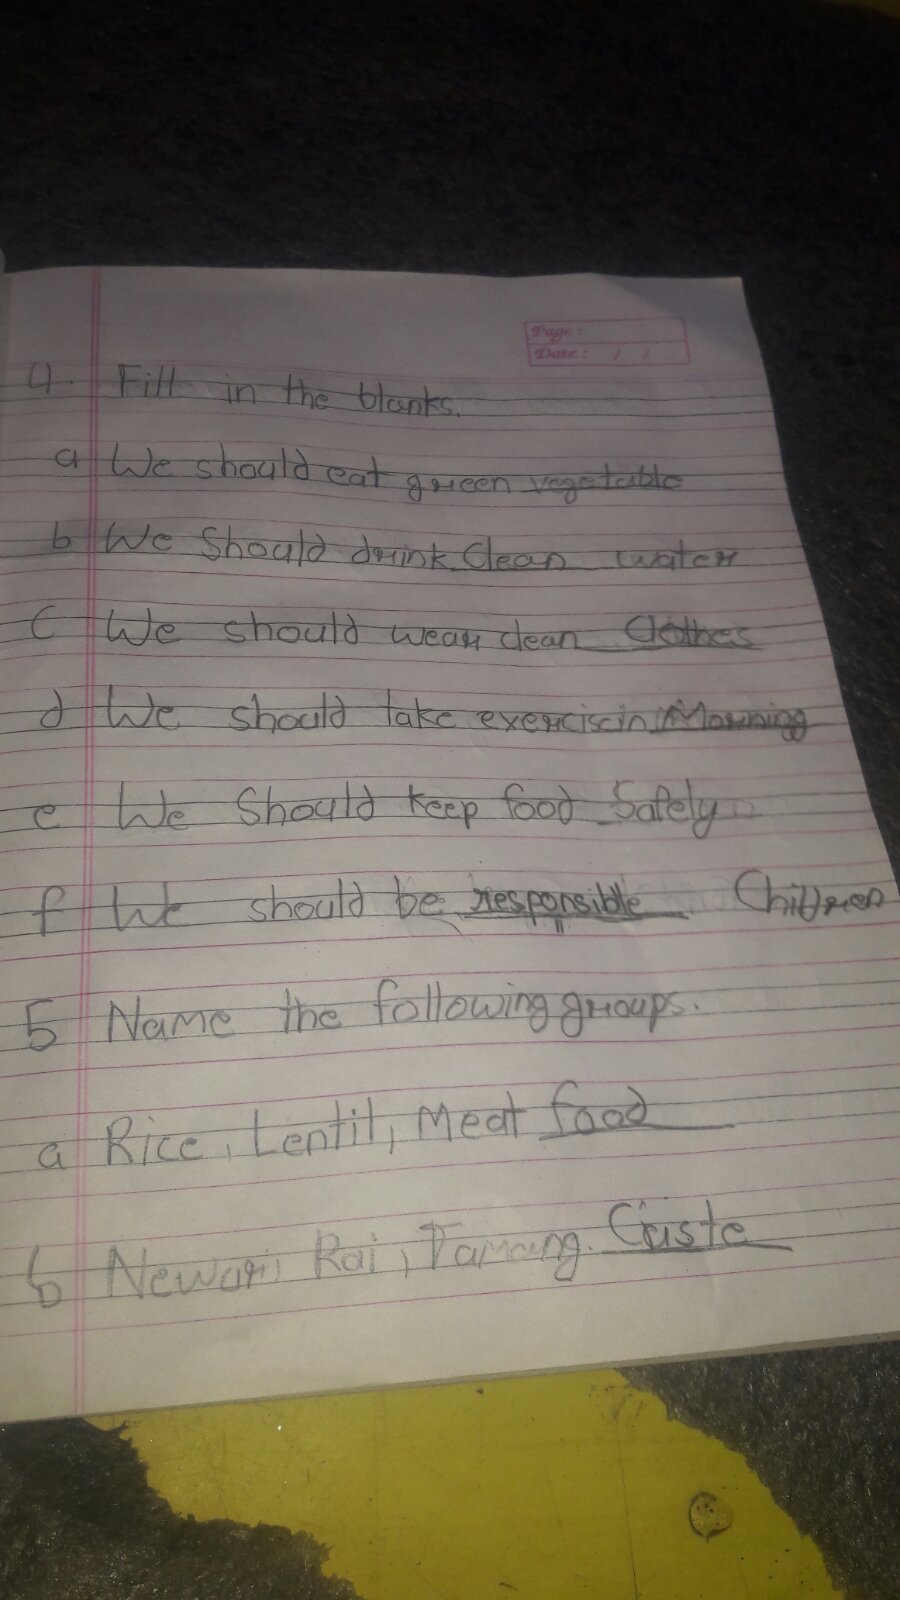 Page:
Date: / /
4. Fill in the blanks.
a We should eat green vegetable
b We Should drink Clean water
c We should wear clean Clothes
d We should take exercise in Morning
e We Should keep food Safely
f We should be responsible Children
5 Name the following groups.
a Rice, Lentil, Meat food
b Newari, Rai, Tamang. Caste